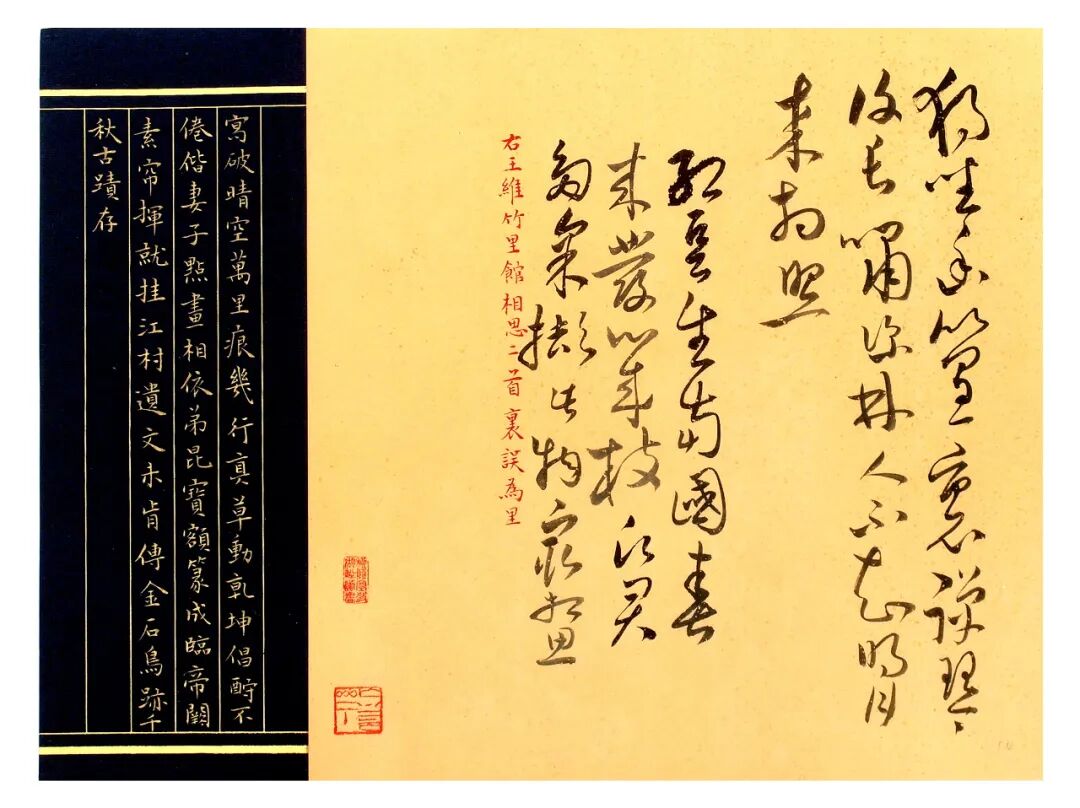 獨坐幽篁裏彈琴
復長嘯深林人不知明月
來相照
紅豆生南國春
來發幾枝願君
多采擷此物最相思
右王維竹里館相思二首裏誤為里
寫破晴空萬里痕幾行真草動乾坤倡酧不
倦偕妻子點畫相依弟昆寶額篆成臨帝闕
素帘揮就挂江村遺文未肯傳金石鳥跡千
秋古蹟存